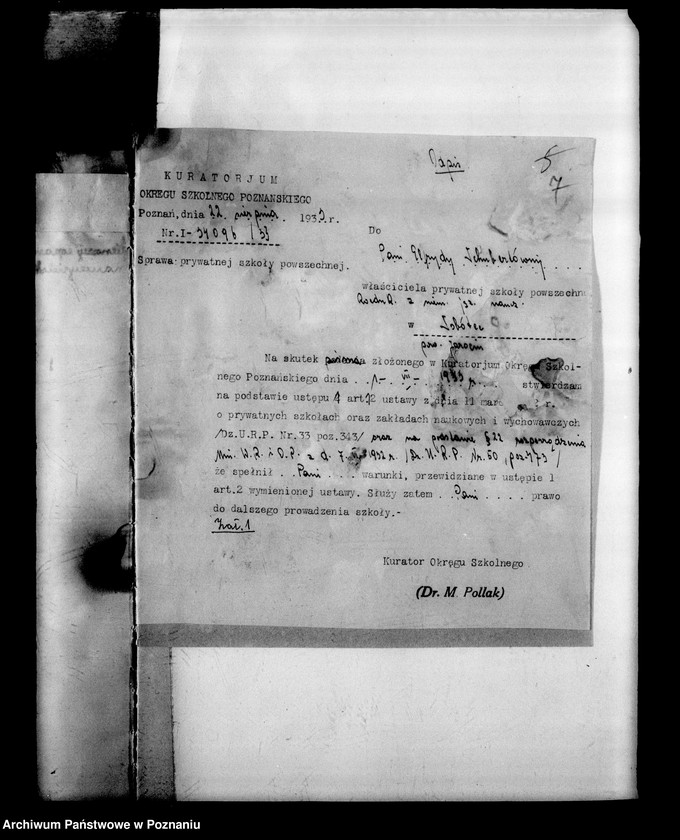 Odpis
5
7
KURATORJUM
OKRĘGU SZKOLNEGO POZNAŃSKIEGO
Poznań, dnia 22. sierpnia . 1933 r.
Nr.I- 34096/33
Do
Sprawa: prywatnej szkoły powszechnej.
Pani Elfrydy . . .
właściciela prywatnej szkoły powszechn
z niem. jęz. naucz.
w
pow. Jarocin
Na skutek złożonego w Kuratorjum Okręgu Szkol-
nego Poznańskiego dnia . . 1933 r. . . stwierdzam
na podstawie ustępu 4 art.12 ustawy z dnia 11 marc r.
o prywatnych szkołach oraz zakładach naukowych i wychowawczych
/Dz.U.R.P. Nr.33 poz.343/ oraz na podstawie § 22 rozporządzenia
Min. W.R. i O.P. z d. 7. 1932 r. /Dz.U.R.P. Nr.50, poz.473/
że spełnił . . Pani . . . warunki, przewidziane w ustępie 1
art.2 wymienionej ustawy. Służy zatem . . Pani . . . . prawo
do dalszego prowadzenia szkoły.-
Zał.1
Kurator Okręgu Szkolnego
(Dr. M. Pollak)
Archiwum Państwowe w Poznaniu